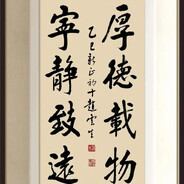 厚德載物
寧靜致遠
乙巳新正初十趙雲生